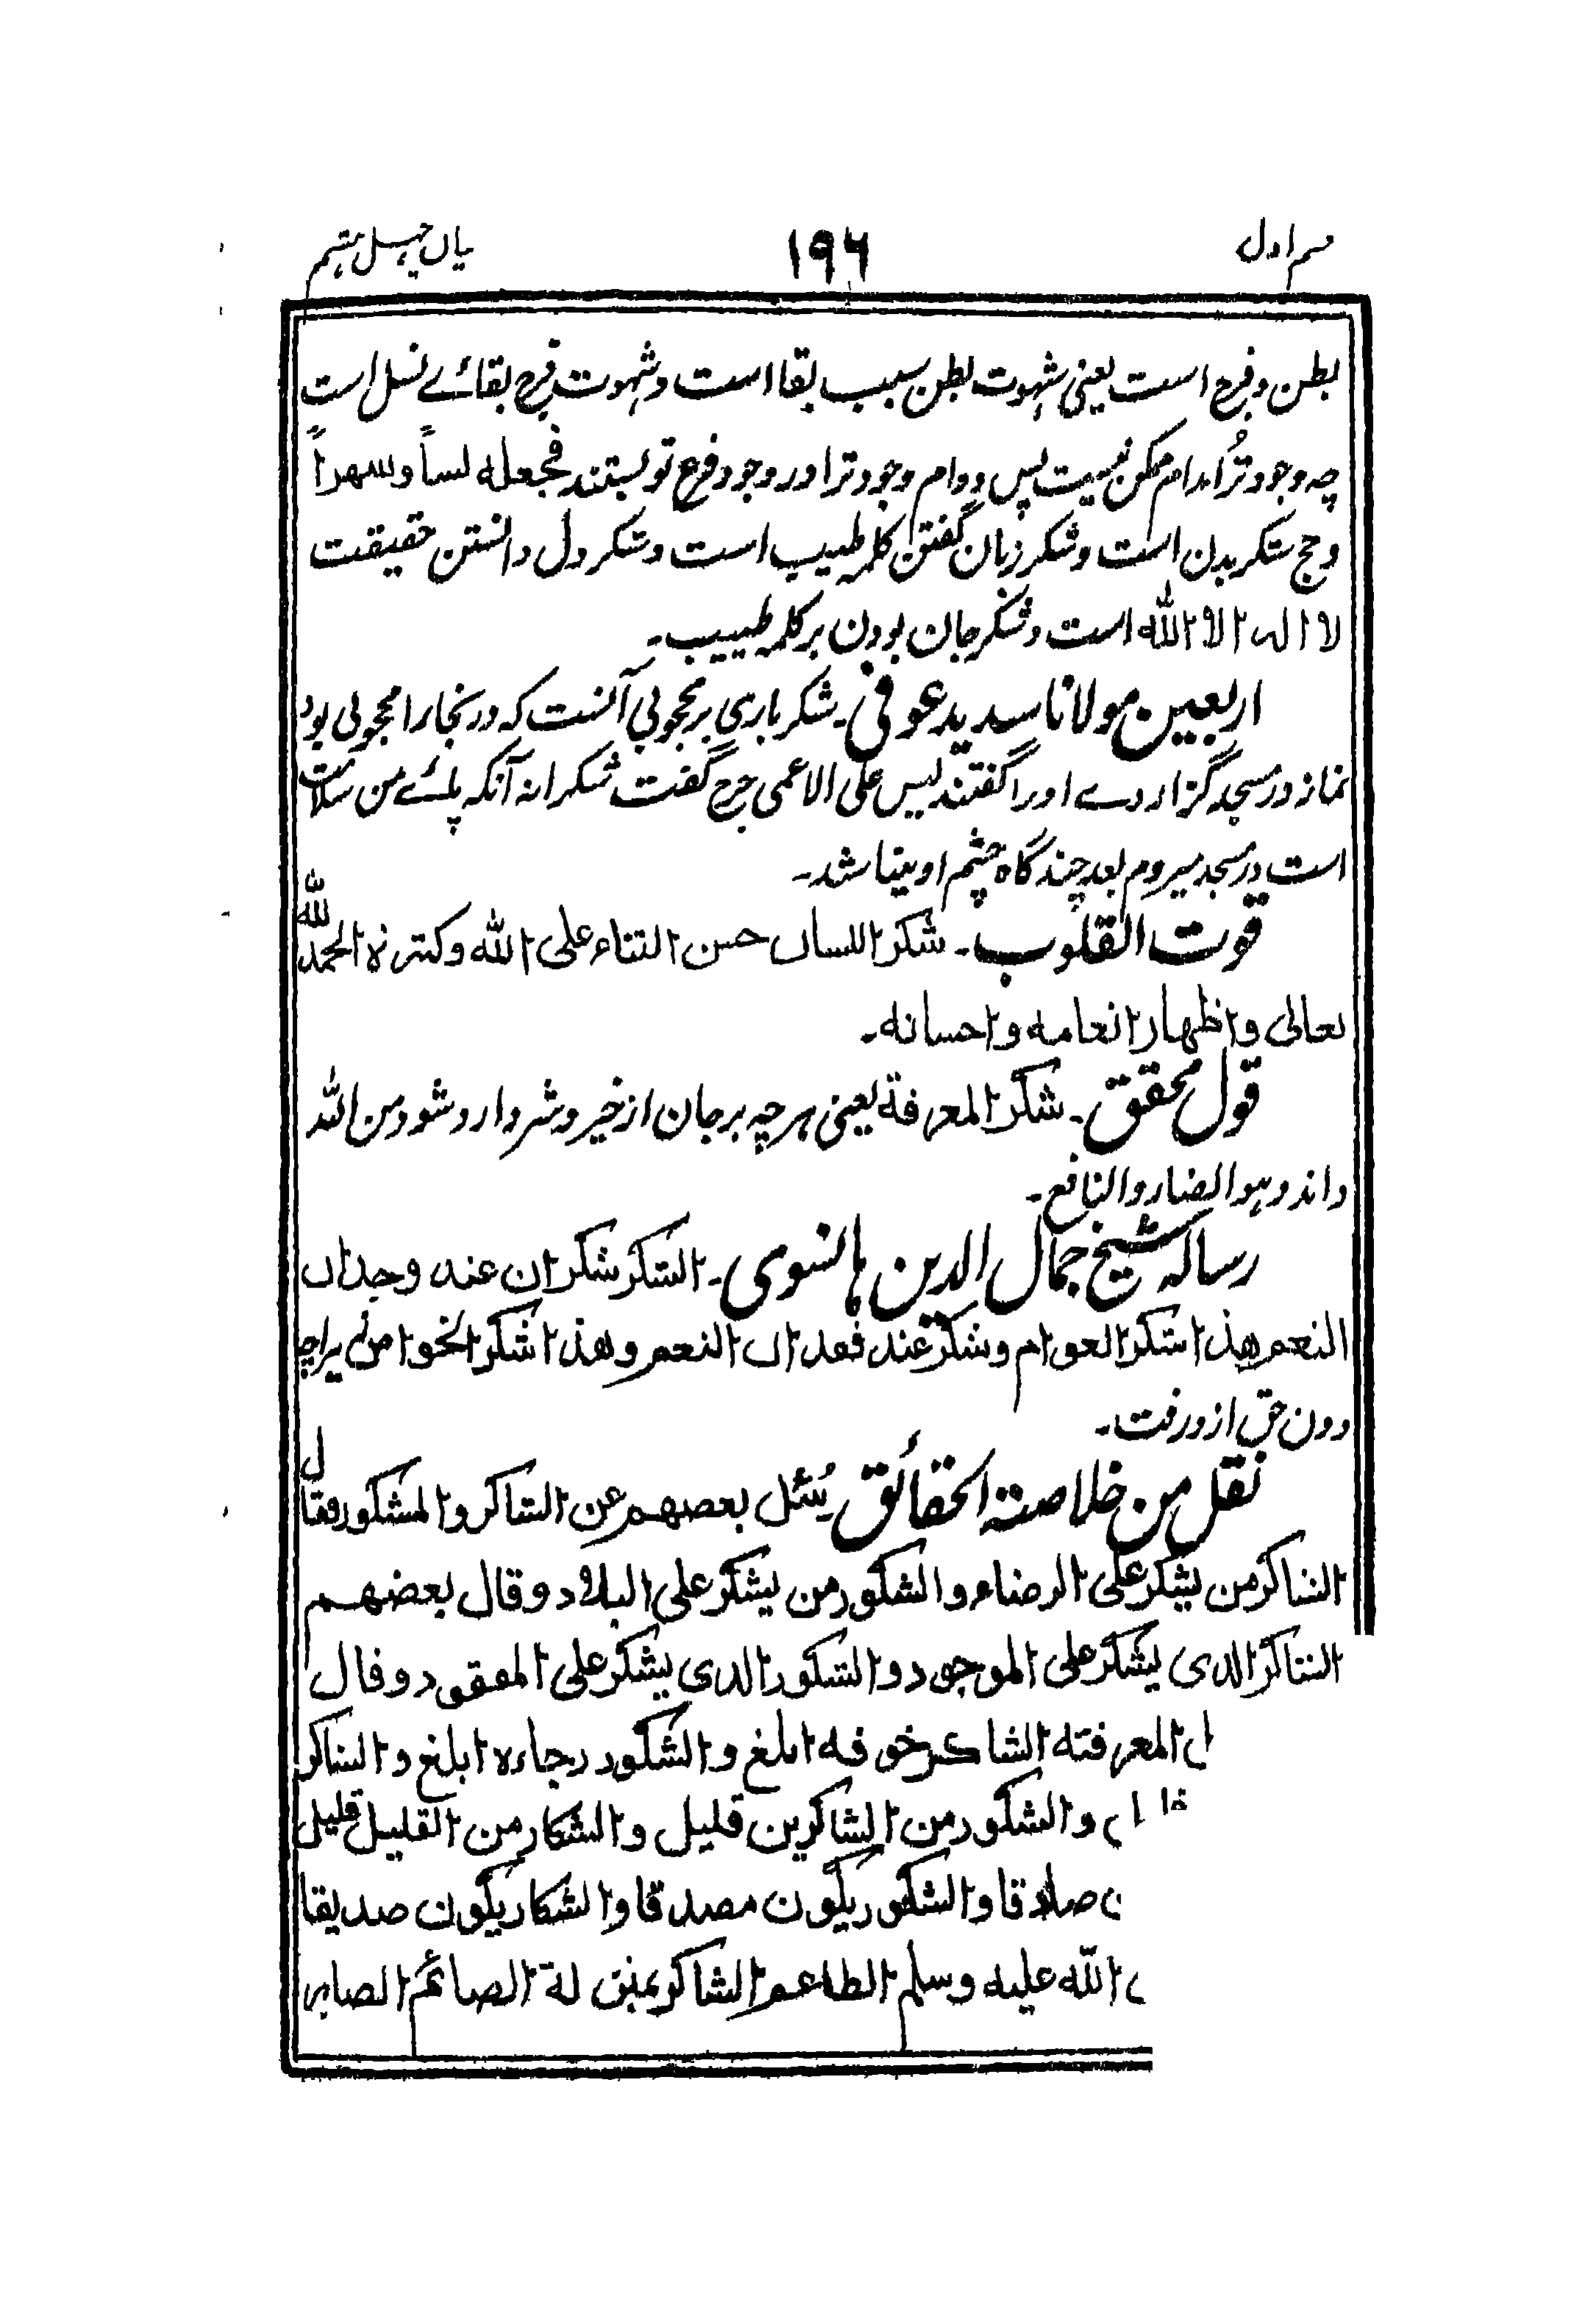 قسم اول ۱۹۶ بیان چہل ہشتم
بطن و فرج است یعنی شہوت بطن سبب بقا است و شہوت فرج بقائے نسل است
چہ وجود ترا مدام ممکن نیست پس دوام وجود ترا در وجود فرع تو بستند فجعله نسباً وصهراً
و حج شکر بدن است و شکر زبان گفتن کلمہ طیب است و شکر دل دانستن حقیقت
لا اله الا الله است و شکر جان بودن بر کلمہ طیب۔
اربعین مولانا سدید عوفی۔ شکر باری بر محجوبی آنست کہ در بخارا محجوبی بود
نماز در مسجد گزاردے او را گفتند لیس علی الاعمی حرج گفت شکرانہ آنکہ پائے من سلامت
است در مسجد میروم بعد چند گاہ چشم او بینا شد۔
قوت القلوب۔ شکر اللسان حسن الثناء علی الله وکثرة الحمد لله
تعالی واظهار انعامه واحسانه۔
قول محقق۔ شکر المعرفة یعنی ہر چہ بر جان از خیر و شر وارد شود من اللہ
داند و ہو الضار والنافع۔
رسالہ شیخ جمال الدین ہانسوی۔ الشکر شکران عند وجدان
النعم هذا شکر العوام وشکر عند فقدان النعم وهذا شکر الخواص زیراچہ
دون حق ازو رفت۔
نقل من خلاصة الحقائق۔ سُئل بعضهم عن الشاکر والمشکور فقال
الشاکر من یشکر علی الرضاء والشکور من یشکر علی البلاء وقال بعضهم
الشاکر الذی یشکر علی الموجود والشکور الذی یشکر علی المفقود وقال
المعرفته الشاکر خوفه ابلغ والشکور رجاءه ابلغ والشاکر
والشکور من الشاکرین قلیل والشکار من القلیل قلیل
صادقا والشکور یکون مصدقا والشکار یکون صدیقا
الله علیه وسلم الطاعم الشاکر بمنزلة الصائم الصابر